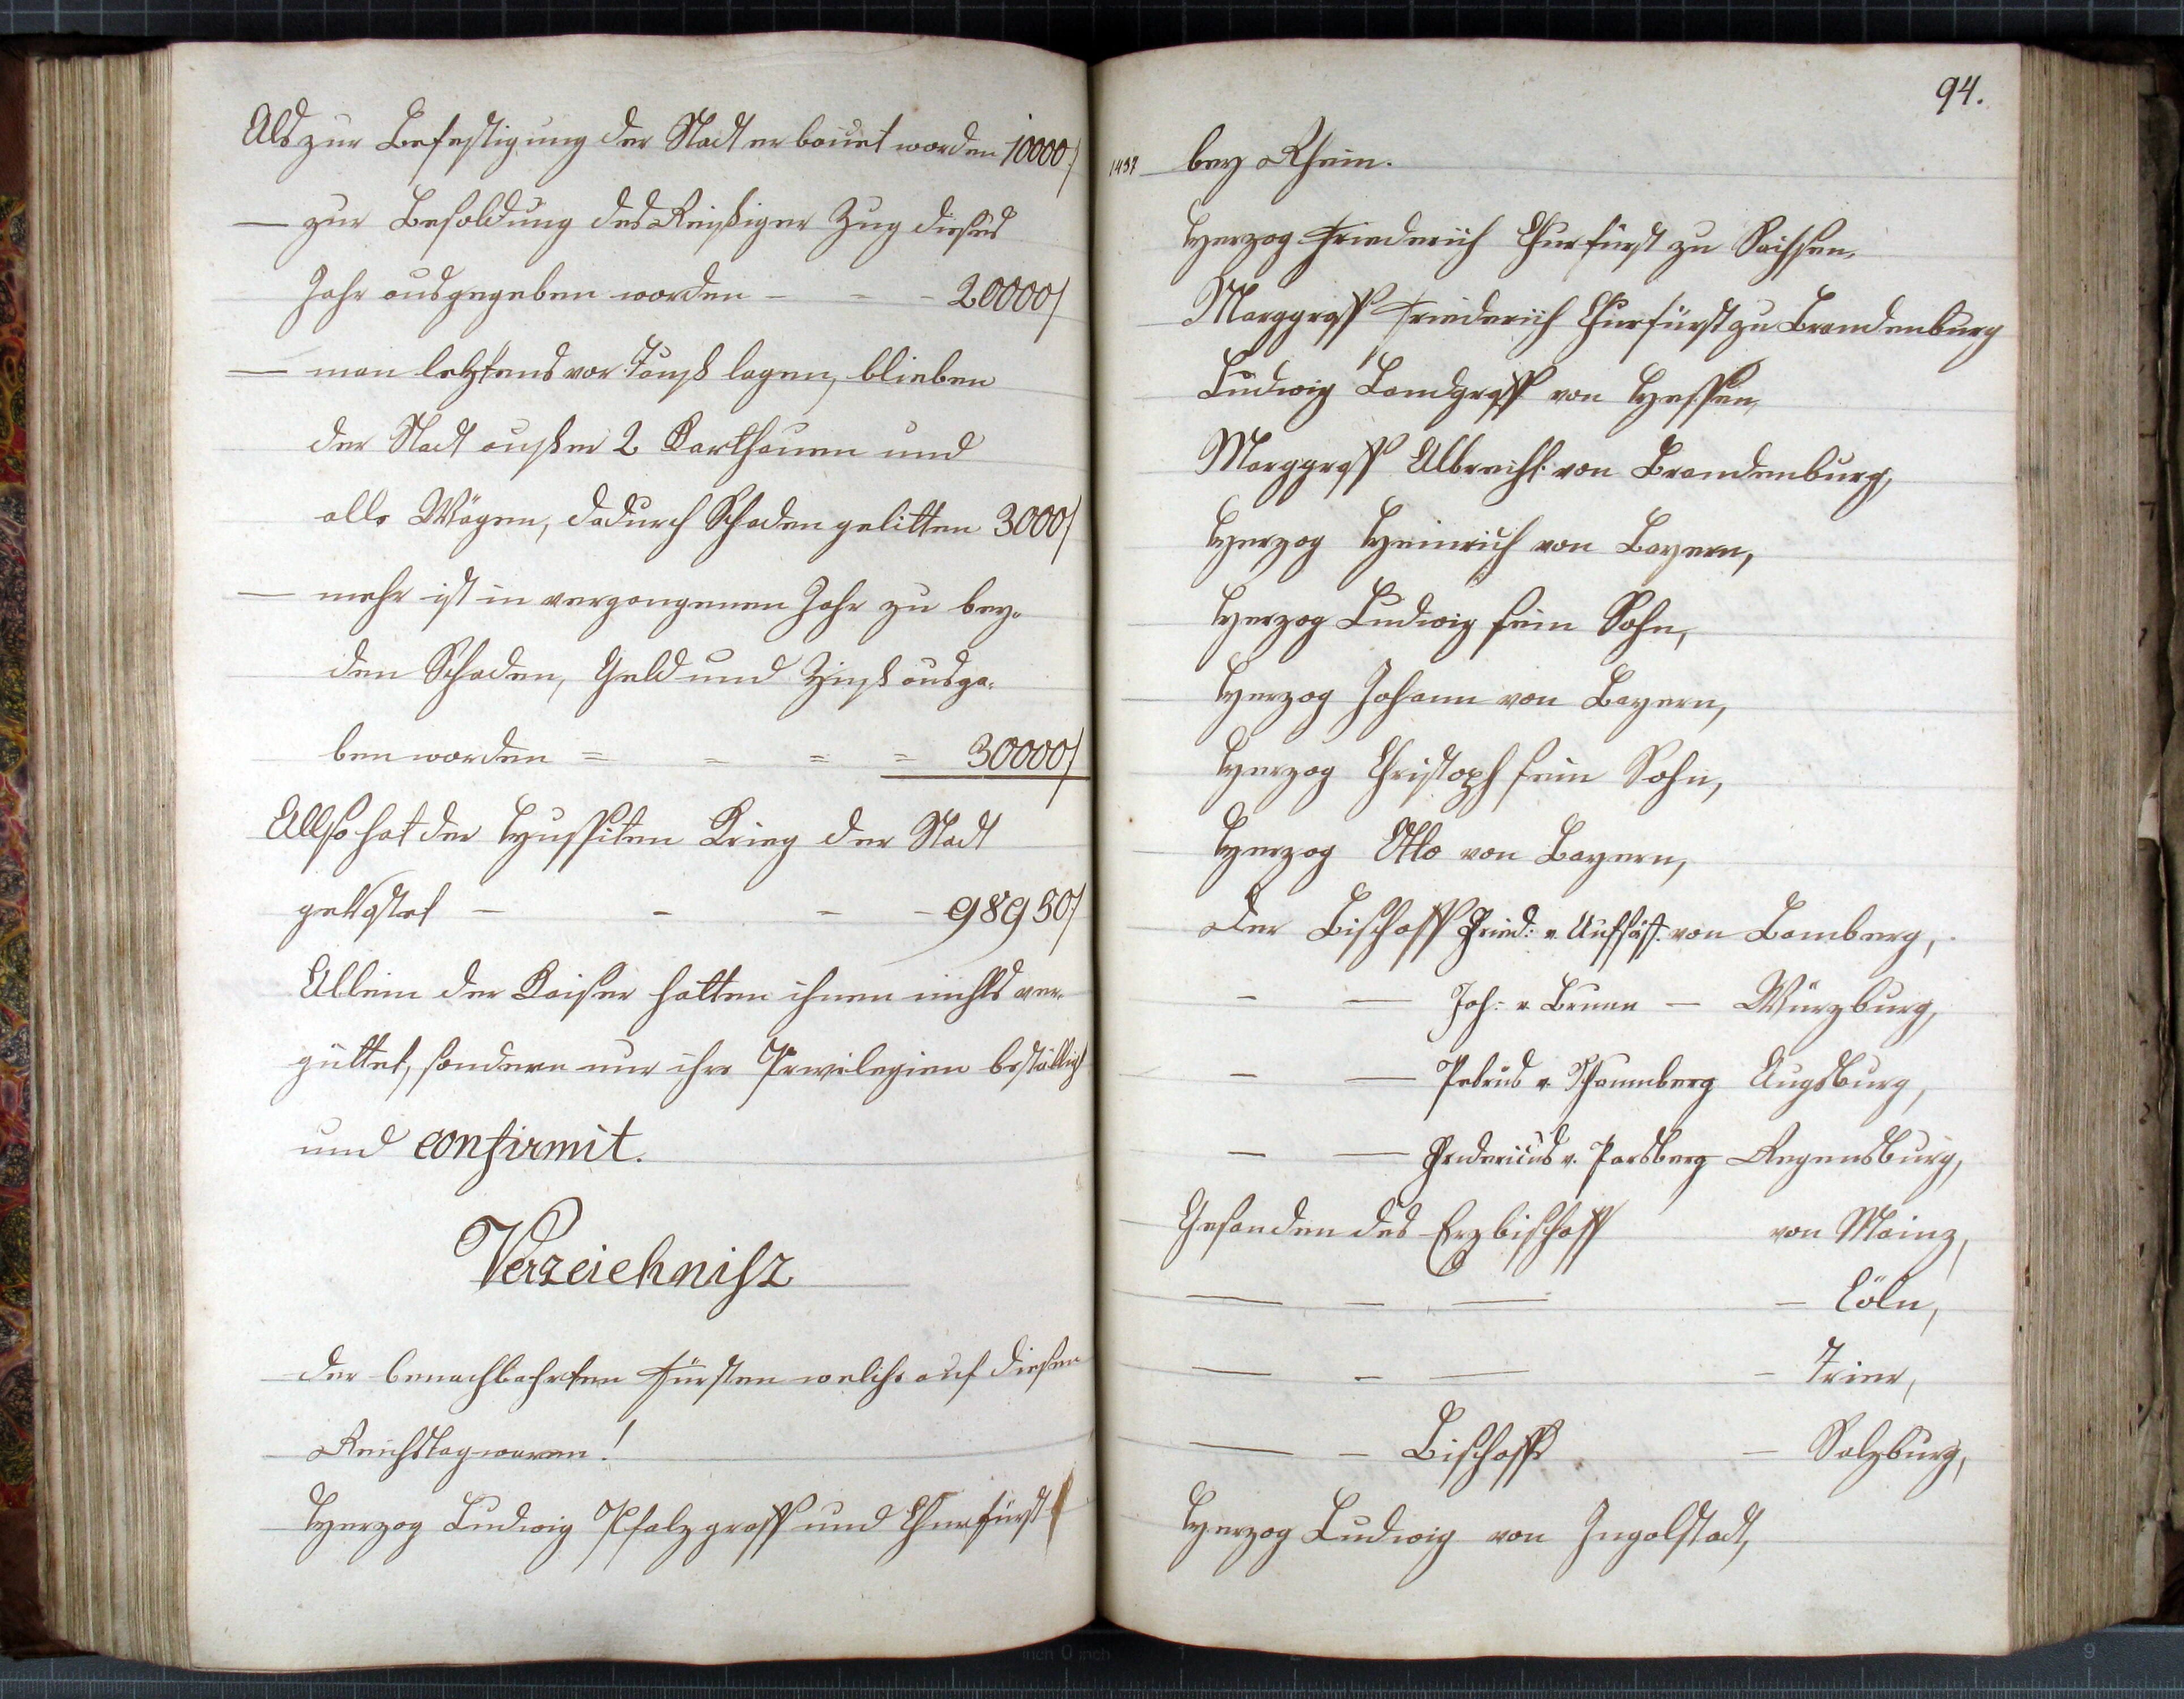 Als zur Befestigung der Stadt erbauet worden 10000f
— zur Besoldung des Reißigen Zug dieses
Jahr ausgegeben worden - - - 20000f
— man letztens vor Tauß lagen, blieben
der Stadt außen 2 Karthaunen und
alle Wägen, dadurch Schaden gelitten 3000f
— mehr ist in vergangenen Jahr zu bey-
den Schaden, Geld und Zinß ausge-
ben worden = = = = 30000f
Allso hat der Hussiten Krieg der Stadt
gekostet - - - - 98950f
Allein der Kaiser hatten ihnen nichts ver-
güttet, sondern nur ihre Privilegien bestättigt
und confirmit.
Verzeichnisz
der benachbahrten Fürsten welche auf diesen
Reichstag waren!
Herzog Ludwig Pfalzgraff und Churfürst
94.
1437 bey Rhein.
Herzog Friederich Churfürst zu Sachssen,
Marggraff Friederich Churfürst zu Brandenburg
Ludwig Landgraff von Hessen,
Marggraff Albrecht von Brandenburg,
Herzog Heinrich von Bayern,
Herzog Ludwig sein Sohn,
Herzog Johann von Bayern,
Herzog Christoph sein Sohn,
Herzog Otto von Bayern,
Der Bischoff Fried: v. Aufsäß. von Bamberg,
- — Joh: v Brunn — Würzburg,
- — Petrus v. Schaumberg Augsburg,
- — Fridericus v. Parsberg Regensburg,
Gesanden des Erzbischoff von Mainz,
— - — - Cöln,
— - — - Trier,
— - Bischoffs - Salzburg,
Herzog Ludwig von Ingolstadt,